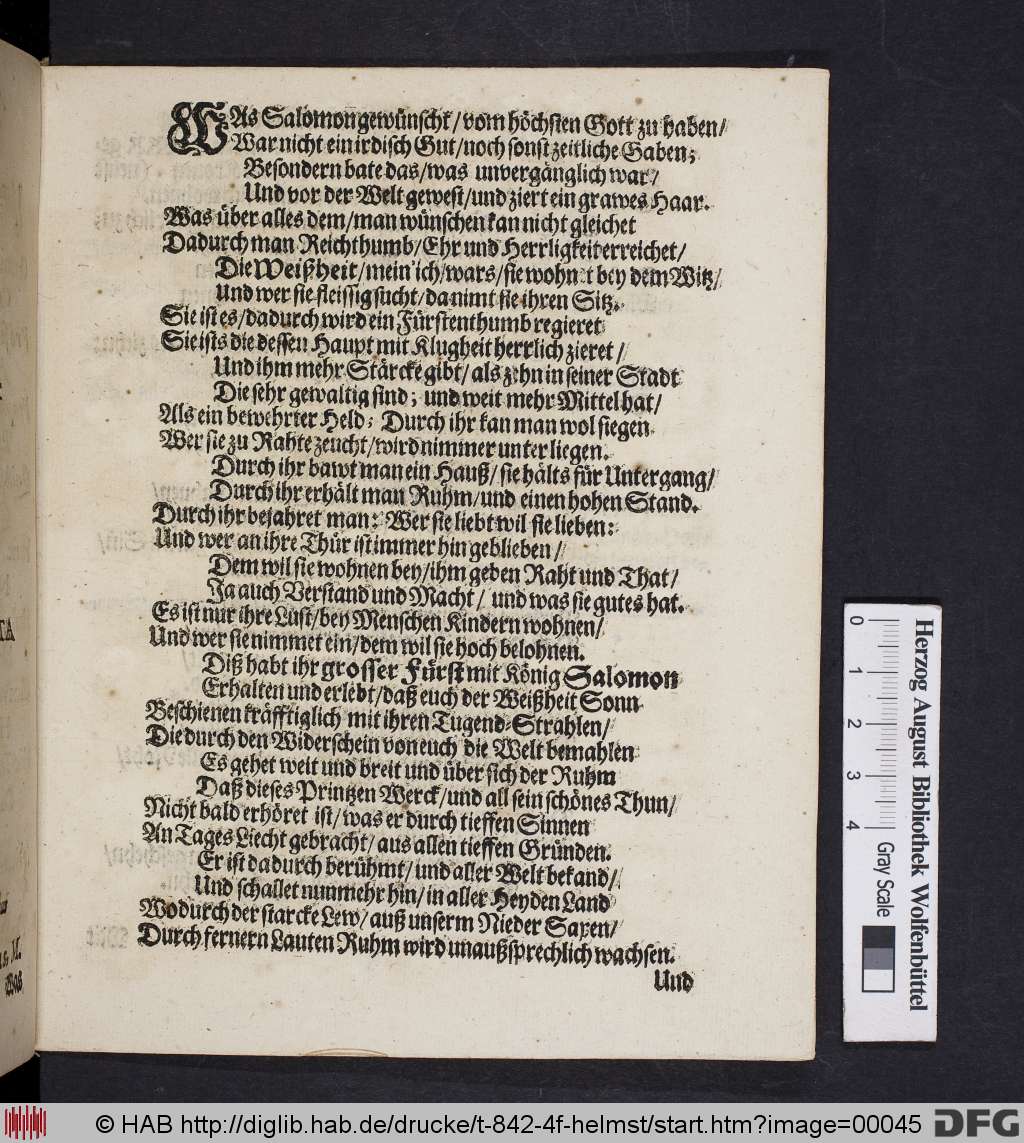 WAs Salomon gewünscht / vom höchsten Gott zu haben /
War nicht ein irdisch Gut / noch sonst zeitliche Gaben;
Besondern bate das / was unvergänglich war /
Und vor der Welt gewest / und ziert ein grawes Haar.
Was über alles dem / man wünschen kan nicht gleichet
Dadurch man Reichthumb / Ehr und Herrligkeit erreichet /
Die Weißheit / mein ich / wars / sie wohnet bey dem Witz /
Und wer sie fleissig sucht / da nimt sie ihren Sitz.
Sie ist es / dadurch wird ein Fürstenthumb regieret
Sie ists die dessen Haupt mit Klugheit herrlich zieret /
Und ihm mehr Stärcke gibt / als zehn in seiner Stadt
Die sehr gewaltig sind; und weit mehr Mittel hat /
Als ein bewehrter Held: Durch ihr kan man wol siegen
Wer sie zu Rahte zeucht / wird nimmer unterliegen.
Durch ihr bawt man ein Hauß / sie hälts für Untergang /
Durch ihr erhält man Ruhm / und einen hohen Stand.
Durch ihr bejahret man: Wer sie liebt wil sie lieben:
Und wer an ihre Thür ist immer hin geblieben /
Dem wil sie wohnen bey / ihm geben Raht und That /
Ja auch Verstand und Macht / und was sie gutes hat.
Es ist nur ihre Lust / bey Menschen Kindern wohnen /
Und wer sie nimmet ein / dem wil sie hoch belohnen.
Diß habt ihr grosser Fürst mit König Salomon
Erhalten und erlebt / daß euch der Weißheit Sonn
Beschienen kräfftiglich mit ihren Tugend-Strahlen /
Die durch den Widerschein von euch die Welt bemahlen
Es gehet weit und breit und über sich der Ruhm
Daß dieses Printzen Werck / und all sein schönes Thun /
Nicht bald erhöret ist / was er durch tieffen Sinnen
An Tages Liecht gebracht / aus allen tieffen Gründen.
Er ist dadurch berühmt / und aller Welt bekand /
Und schallet nunmehr hin / in aller Heyden Land
Wodurch der starcke Lew / auß unserm Nieder Saxen /
Durch fernern Lauten Ruhm wird unaußsprechlich wachsen.
Und
TA
M.
Was
0 1 2 3 4
Gray Scale
Herzog August Bibliothek Wolfenbüttel
© HAB http://diglib.hab.de/drucke/t-842-4f-helmst/start.htm?image=00045
DFG